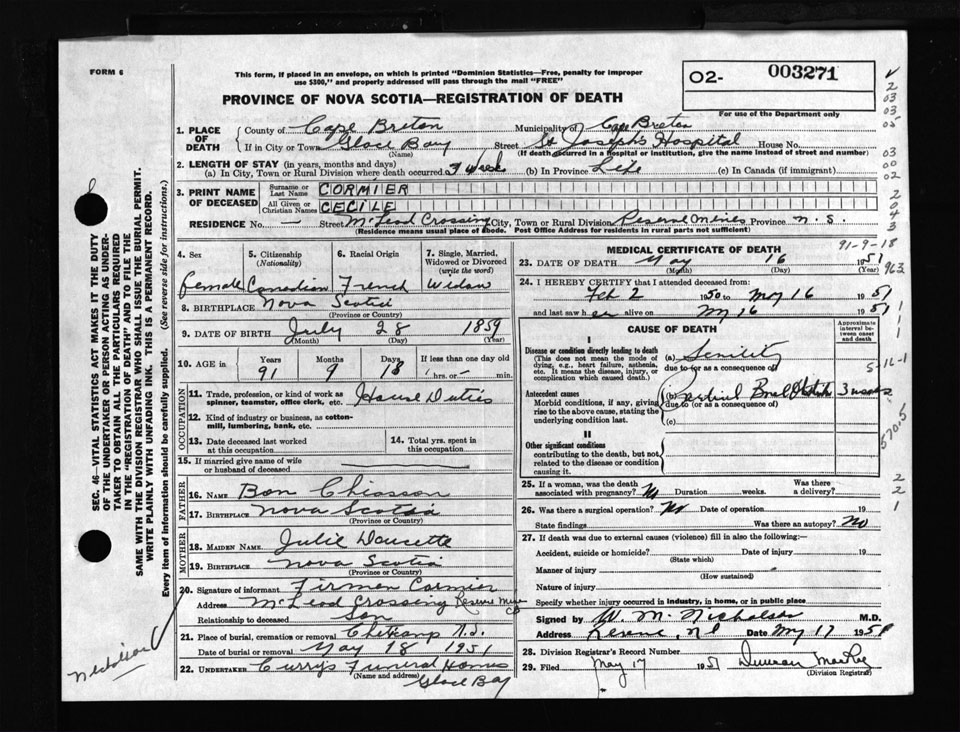 FORM 6
This form, if placed in an envelope, on which is printed "Dominion Statistics—Free, penalty for improper
use $300," and properly addressed will pass through the mail "FREE"
PROVINCE OF NOVA SCOTIA—REGISTRATION OF DEATH
O2- 003271
For use of the Department only
SEC. 46—VITAL STATISTICS ACT MAKES IT THE DUTY
OF THE UNDERTAKER OR PERSON ACTING AS UNDER-
TAKER TO OBTAIN ALL THE PARTICULARS REQUIRED
IN THE "REGISTRATION OF DEATH" AND TO FILE THE
SAME WITH THE DIVISION REGISTRAR WHO SHALL ISSUE THE BURIAL PERMIT.
WRITE PLAINLY WITH UNFADING INK. THIS IS A PERMANENT RECORD.
Every item of information should be carefully supplied. (See reverse side for instructions.)
1. PLACE OF DEATH
County of Cape Breton Municipality of Cape Breton
If in City or Town Glace Bay Street St Joseph's Hospital House No.
(Name) (If death occurred in a hospital or institution, give the name instead of street and number)
2. LENGTH OF STAY (in years, months and days)
(a) In City, Town or Rural Division where death occurred 3 weeks (b) In Province Life (c) In Canada (if immigrant)
3. PRINT NAME OF DECEASED
Surname or Last Name CORMIER
All Given or Christian Names CECILE
RESIDENCE No. — Street McLeod Crossing City, Town or Rural Division Reserve Mines Province N.S.
(Residence means usual place of abode. Post Office Address for residents in rural parts not sufficient)
4. Sex
female
5. Citizenship (Nationality)
Canadian
6. Racial Origin
French
7. Single, Married, Widowed or Divorced (write the word)
Widow
8. BIRTHPLACE Nova Scotia
(Province or Country)
9. DATE OF BIRTH July 28 1859
(Month) (Day) (Year)
10. AGE in Years 91 Months 9 Days 18 If less than one day old hrs. or min.
OCCUPATION
11. Trade, profession, or kind of work as spinner, teamster, office clerk, etc. House Duties
12. Kind of industry or business, as cotton-mill, lumbering, bank, etc.
13. Date deceased last worked at this occupation
14. Total yrs. spent in this occupation
15. If married give name of wife or husband of deceased
FATHER
16. NAME Bon Chiasson
17. BIRTHPLACE Nova Scotia
(Province or Country)
MOTHER
18. MAIDEN NAME Julie Doucette
19. BIRTHPLACE Nova Scotia
(Province or Country)
20. Signature of informant Firmen Cormier
Address McLeod Crossing Reserve Mines CB
Relationship to deceased Son
21. Place of burial, cremation or removal Chetkamp N.S.
Date of burial or removal May 18 1951
22. UNDERTAKER Curry's Funeral Homes
(Name and address) Glace Bay
Nicholson
MEDICAL CERTIFICATE OF DEATH
91-9-18
23. DATE OF DEATH May 16 1951
(Month) (Day) (Year)
24. I HEREBY CERTIFY that I attended deceased from:
Feb 2 1950 to May 16 1951
and last saw her alive on My 16 1951
CAUSE OF DEATH
Approximate interval between onset and death
I
Disease or condition directly leading to death
(This does not mean the mode of dying, e.g., heart failure, asthenia, etc. It means the disease, injury, or complication which caused death.)
(a) Senility
due to (or as a consequence of)
Antecedent causes
Morbid conditions, if any, giving rise to the above cause, stating the underlying condition last.
(b) Partial Bowel 3 weeks
due to (or as a consequence of)
(c)
II
Other significant conditions
contributing to the death, but not related to the disease or condition causing it.
25. If a woman, was the death associated with pregnancy? No Duration weeks. Was there a delivery?
26. Was there a surgical operation? No Date of operation 19
State findings Was there an autopsy? No
27. If death was due to external causes (violence) fill in also the following:—
Accident, suicide or homicide? Date of injury 19
(State which)
Manner of injury
(How sustained)
Nature of injury
Specify whether injury occurred in industry, in home, or in public place
Signed by W. M. Nicholson M.D.
Address Reserve, NS Date My 17 1951
28. Division Registrar's Record Number
29. Filed May 17 1951 Duncan MacRae
(Division Registrar)